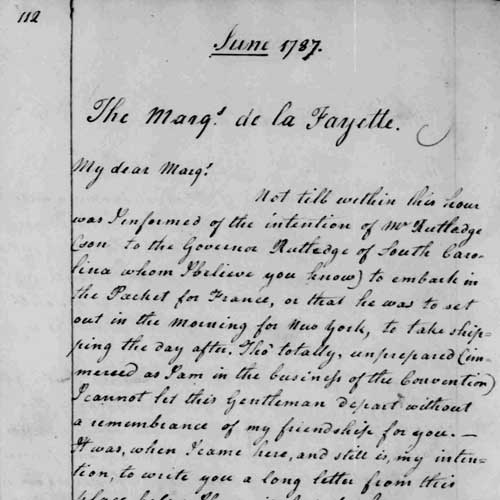 112
June 1787.
The Marqs. de la Fayette.
My dear Marqs.
Not till within this hour
was I informed of the intention of Mr Rutledge
(son to the Governor Rutledge of South Caro-
lina whom I believe you know) to embark in
the Packet for France, or that he was to set
out in the Morning for New York, to take ship-
ping the day after. Tho' totally, unprepared (im-
mersed as I am in the business of the Convention)
I cannot let this Gentleman depart without
a remembrance of my friendship for you.—
It was, when I came here, and still is, my inten-
tion, to write you a long letter from this
place before I